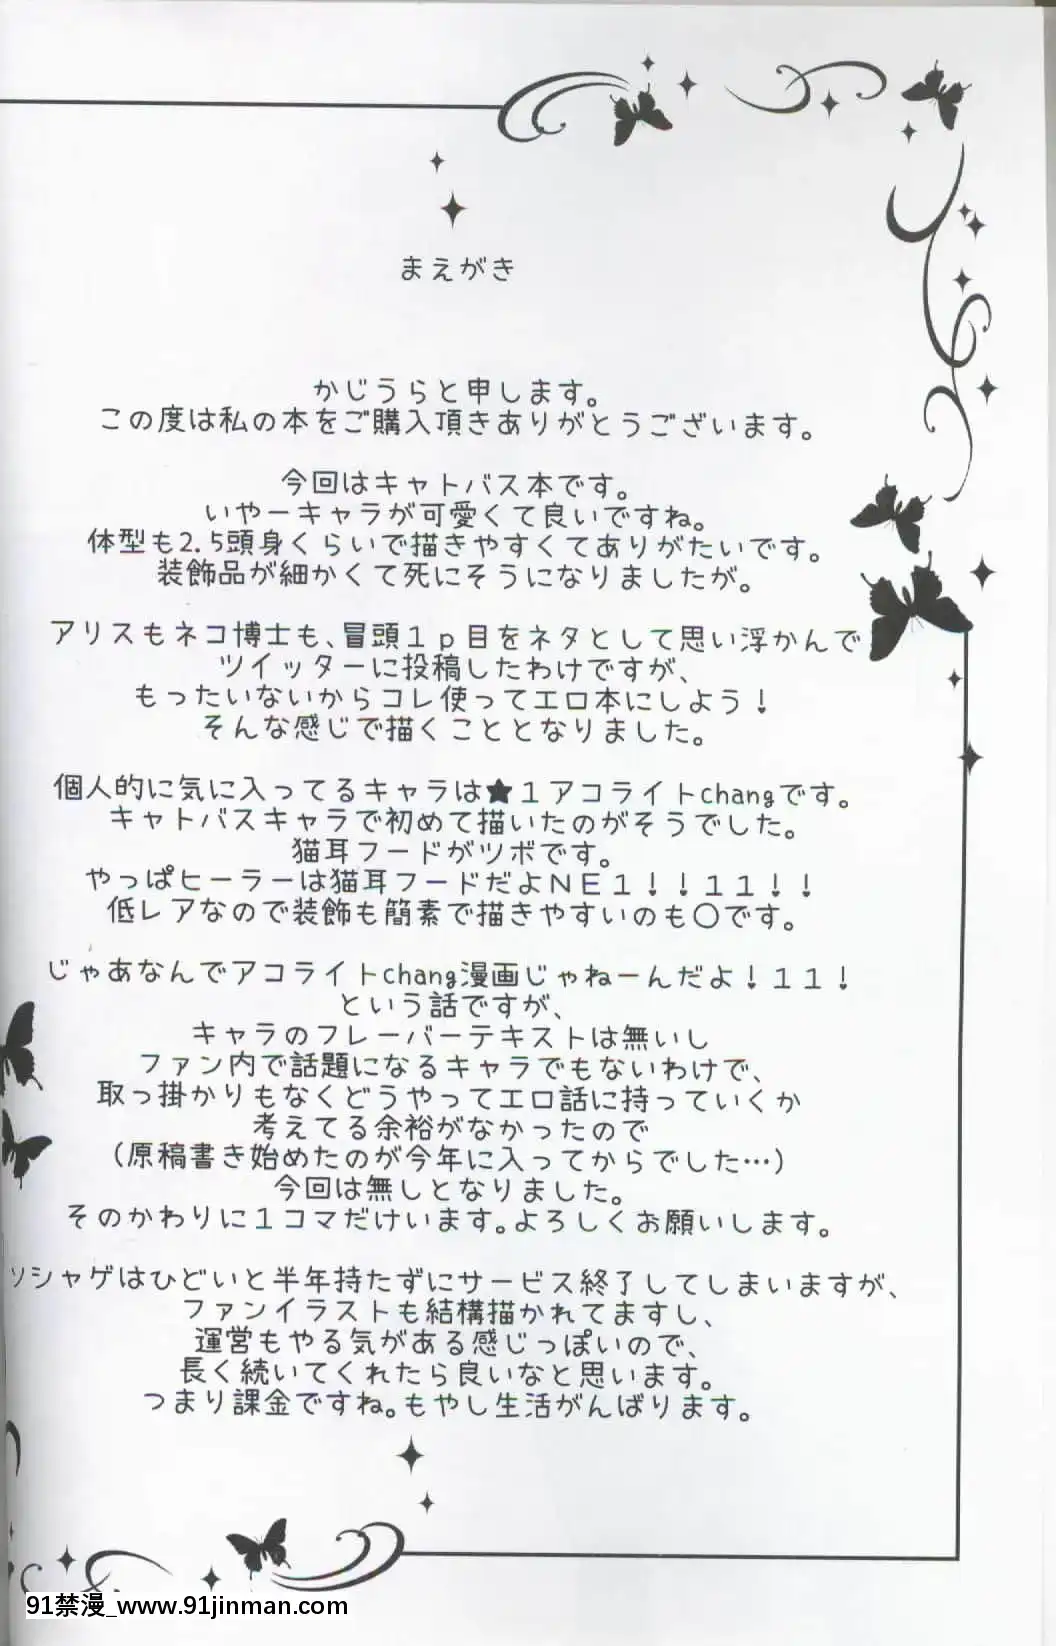 まえがき
かじうらと申します。
この度は私の本をご購入頂きありがとうございます。
今回はキャトバス本です。
いやーキャラが可愛くて良いですね。
体型も2.5頭身くらいで描きやすくてありがたいです。
装飾品が細かくて死にそうになりましたが。
アリスもネコ博士も、冒頭１ｐ目をネタとして思い浮かんで
ツイッターに投稿したわけですが、
もったいないからコレ使ってエロ本にしよう！
そんな感じで描くこととなりました。
個人的に気に入ってるキャラは★１アコライトchangです。
キャトバスキャラで初めて描いたのがそうでした。
猫耳フードがツボです。
やっぱヒーラーは猫耳フードだよＮＥ１！！１１！！
低レアなので装飾も簡素で描きやすいのも〇です。
じゃあなんでアコライトchang漫画じゃねーんだよ！１１！
という話ですが、
キャラのフレーバーテキストは無いし
ファン内で話題になるキャラでもないわけで、
取っ掛かりもなくどうやってエロ話に持っていくか
考えてる余裕がなかったので
（原稿書き始めたのが今年に入ってからでした…）
今回は無しとなりました。
そのかわりに１コマだけいます。よろしくお願いします。
ソシャゲはひどいと半年持たずにサービス終了してしまいますが、
ファンイラストも結構描かれてますし、
運営もやる気がある感じっぽいので、
長く続いてくれたら良いなと思います。
つまり課金ですね。もやし生活がんばります。
91禁漫_www.91jinman.com